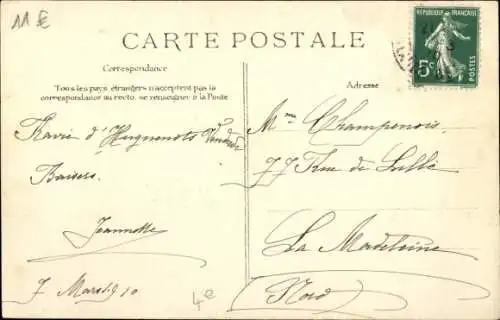 11 €
CARTE POSTALE
REPUBLIQUE FRANÇAISE
5c
POSTES
Correspondance
Tous les pays étrangers n'acceptent pas la
correspondance au recto, se renseigner à la Poste
Adresse
Ravie d'Huguenots
Baisers.
Jeannette
7 Mars 1910
4e
Mme Champenois
77 Rue de Lille
La Madeleine
Nord